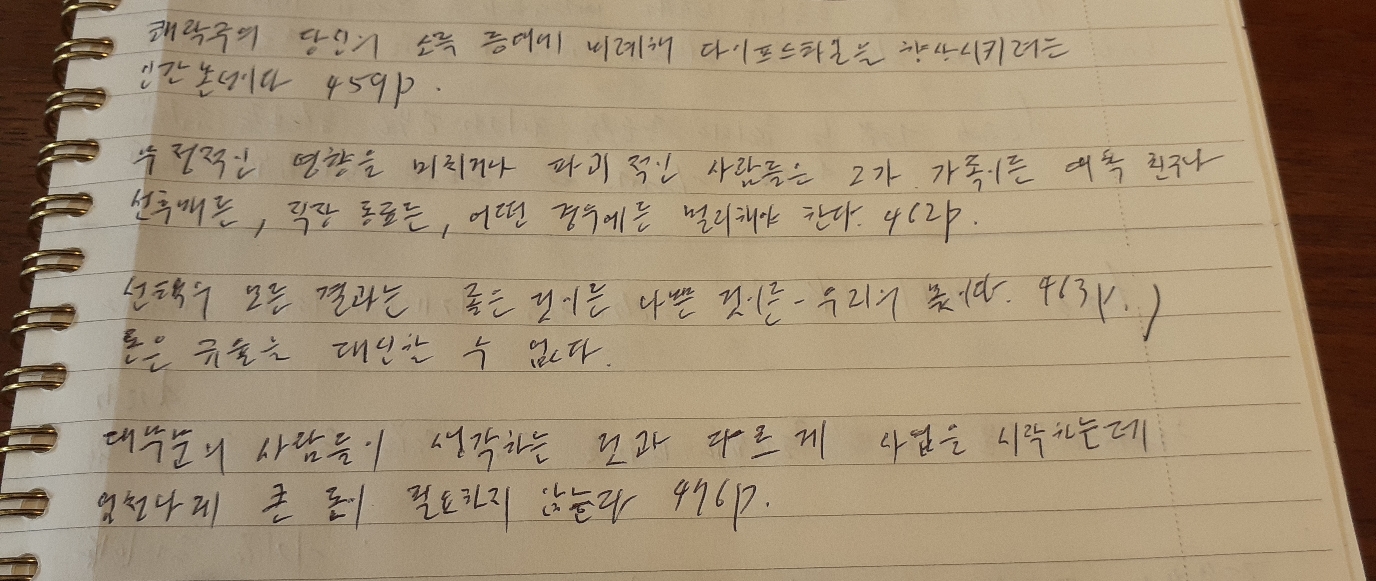 쾌락주의 당신의 소득 증대에 비례해 라이프스타일을 향상시키려는
인간 본성이다 459p.
부정적인 영향을 미치거나 파괴적인 사람들은 그가 가족이든 애초 친구나
선후배든, 직장 동료든, 어떤 경우에든 멀리해야 한다. 462p.
선택의 모든 결과는 좋은 것이든 나쁜 것이든-우리의 몫이다. 463p.)
돈은 규율을 대신할 수 없다.
대부분의 사람들이 생각하는 것과 다르게 사업을 시작하는데
엄청나게 큰 돈이 필요하지 않는다 476p.